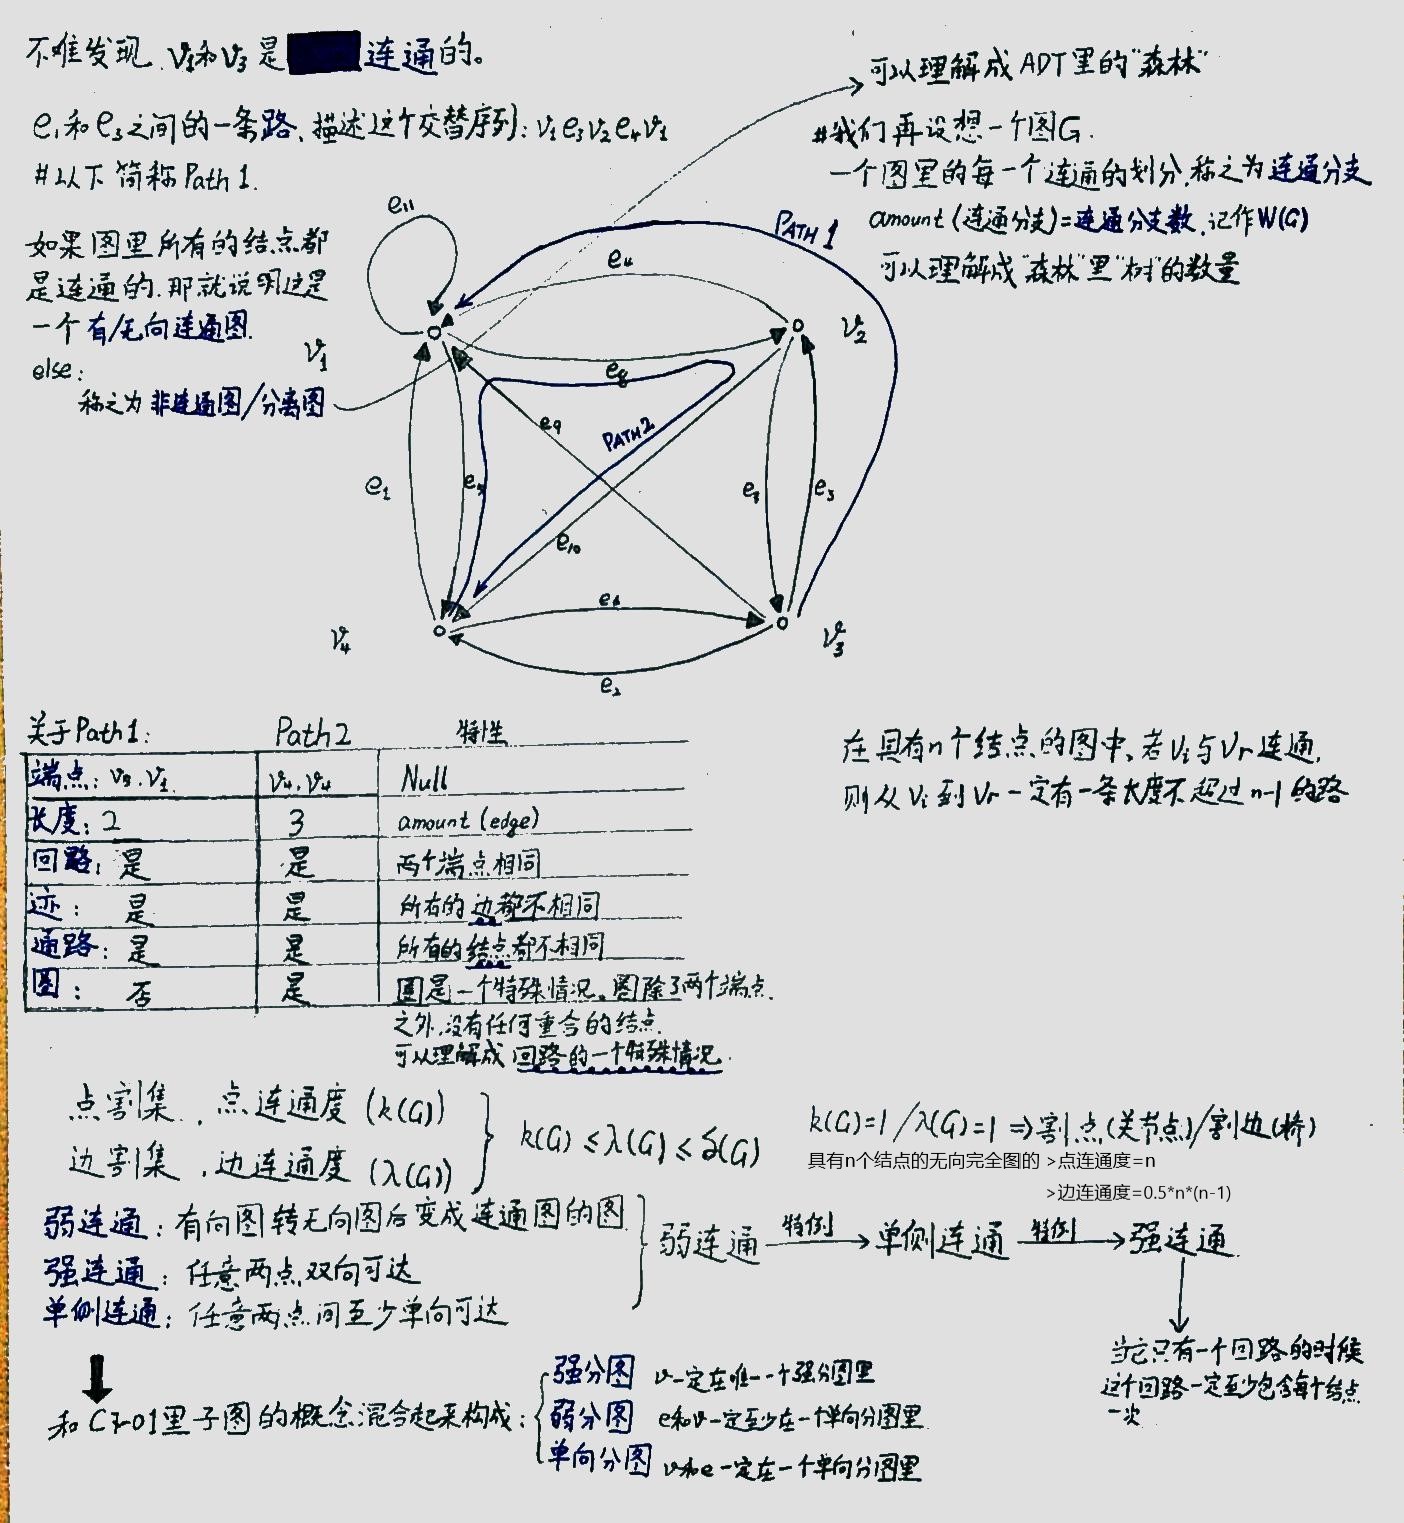 不难发现、v₁和v₃是 连通的。
e₁和e₃之间的一条路、描述这个交替序列：v₁e₃v₂e₄v₁
#以下简称Path1.
如果图里所有的结点都
是连通的.那就说明这是
一个有/无向连通图.
else:
称之为非连通图/分离图
可以理解成ADT里的"森林"
#我们再设想一个图G.
一个图里的每一个连通的划分,称之为连通分支
amount(连通分支)=连通分支数.记作W(G)
可以理解成"森林"里"树"的数量
e₁₁
PATH 1
e₄
v₁
v₂
e₈
e₉
PATH2
e₁
e₅
e₇
e₃
e₁₀
e₆
v₄
v₃
e₂
关于Path1: Path2 特性
端点: v₃.v₁. v₄.v₄ Null
长度: 2 3 amount(edge)
回路: 是 是 两个端点相同
迹: 是 是 所有的边都不相同
通路: 是 是 所有的结点都不相同
圈: 否 是 圈是一个特殊情况。圈除了两个端点
之外,没有任何重合的结点.
可以理解成回路的一个特殊情况.
在具有n个结点的图中、若vᵢ与vᵣ连通,
则从vᵢ到vᵣ一定有一条长度不超过n-1的路
点割集.,点连通度(k(G))
边割集,边连通度(λ(G))
k(G)≤λ(G)≤δ(G)
k(G)=1/λ(G)=1⇒割点(关节点)/割边(桥)
具有n个结点的无向完全图的 >点连通度=n
>边连通度=0.5*n*(n-1)
弱连通：有向图转无向图后变成连通图的图
强连通：任意两点双向可达
单侧连通：任意两点间至少单向可达
弱连通 特例 单侧连通 特例 强连通.
当它只有一个回路的时候
这个回路一定至少包含每个结点
一次
和C7-01里子图的概念混合起来构成：
强分图 v一定在唯一一个强分图里
弱分图 e和v一定至少在一个单向分图里
单向分图 v和e一定在一个单向分图里